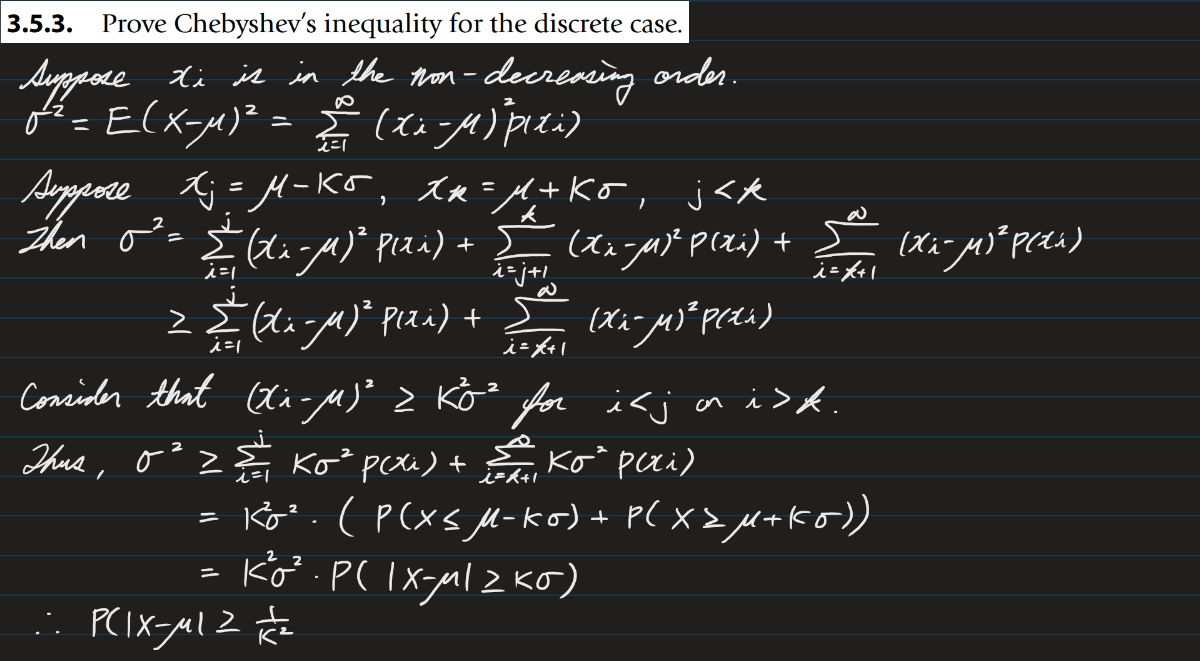 3.5.3. Prove Chebyshev's inequality for the discrete case.
Suppose xi is in the non-decreasing order.
σ² = E(X-μ)² = ∑_{i=1}^{∞} (xi-μ)² p(xi)
Suppose xj = μ-Kσ, xk = μ+Kσ, j<k
Then σ² = ∑_{i=1}^{j} (xi-μ)² P(xi) + ∑_{i=j+1}^{k} (xi-μ)² P(xi) + ∑_{i=k+1}^{∞} (xi-μ)² P(xi)
≥ ∑_{i=1}^{j} (xi-μ)² P(xi) + ∑_{i=k+1}^{∞} (xi-μ)² P(xi)
Consider that (xi-μ)² ≥ K²σ² for i<j or i>k.
Thus, σ² ≥ ∑_{i=1}^{j} Kσ² p(xi) + ∑_{i=k+1}^{∞} Kσ² p(xi)
= K²σ² · ( P(X≤μ-kσ) + P(X≥μ+kσ))
= K²σ² · P( |X-μ| ≥ Kσ)
∴ P(|X-μ| ≥ 1/K²